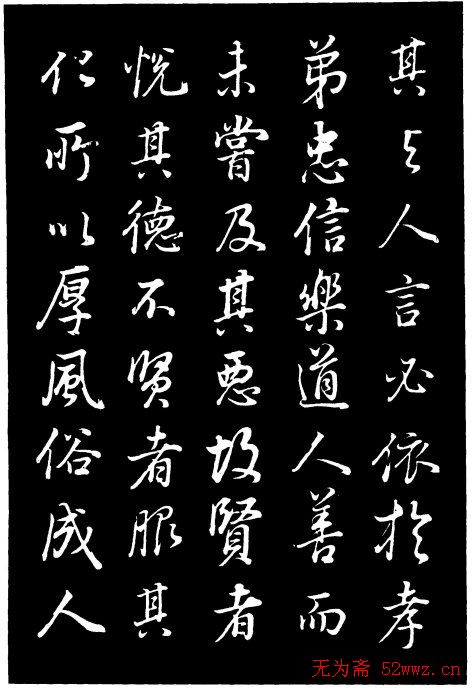 其与人言必依於孝
弟忠信樂道人善而
未嘗及其惡故賢者
悦其德不賢者服其
化所以厚風俗成人
无为斋 52wwz.cn